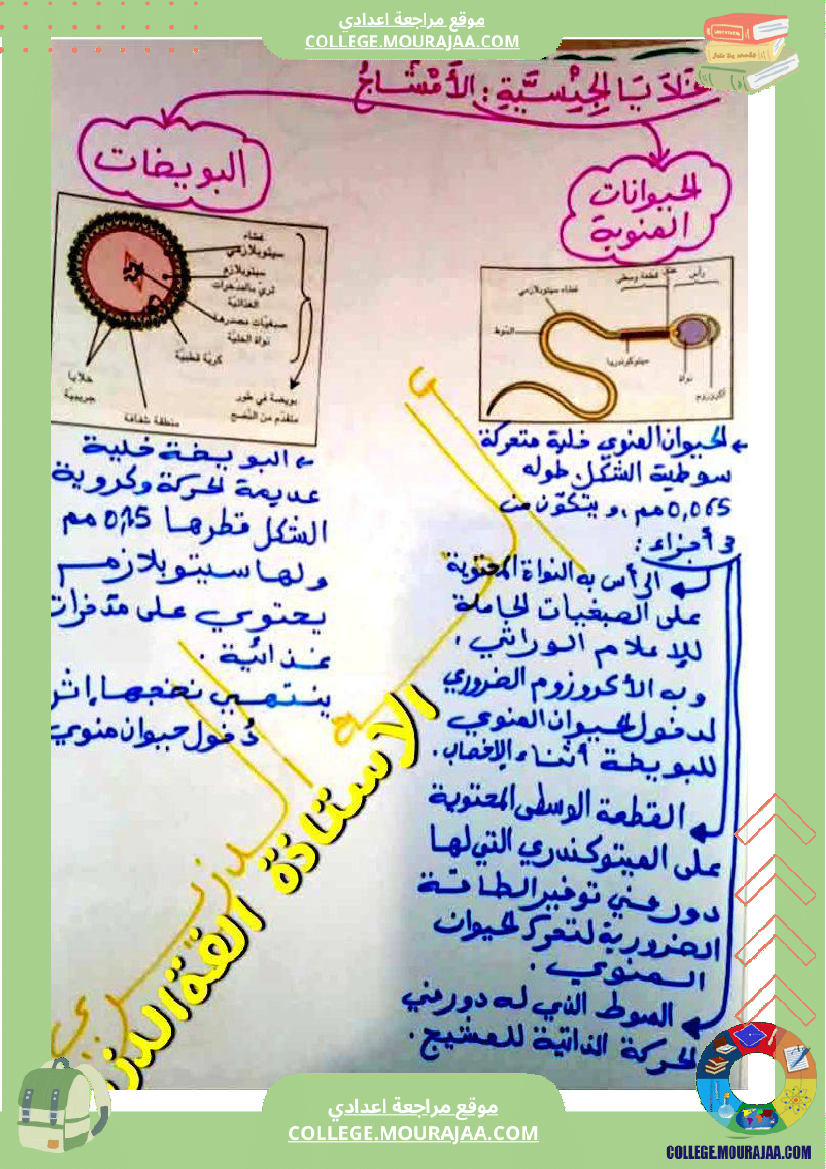 موقع مراجعة اعدادي
COLLEGE.MOURAJAA.COM
خلايا الجنسية : الأمشاج
الحيوانات
المنوية
رأس
عنق
قطعة وسطى
غشاء سيتوبلازمي
السّوط
ميتوكوندريا
نواة
أكروزوم
← الحيوان المنوي خلية متحركة
سوطية الشكل طوله
0,065 مم ، و يتكوّن من
3 أجزاء :
الرأس به النواة المحتوية
على الصبغيات الحاملة
للإعلام الوراثي ،
و به الأكروزوم الضروري
لدخول الحيوان المنوي
للبويضة أثناء الإخصاب .
القطعة الوسطى المحتوية
على الميتوكندري التي لها
دور في توفير الطاقة
الضرورية لتحرك الحيوان
المنوي .
السوط الذي له دور في
الحركة الذاتية للمشيج .
البويضات
غشاء
سيتوبلازمي
سيتوبلازم
ثريّ بالمدّخرات
الغذائيّة
صبغيّات مصدرها
نواة الخليّة
كريّة قطبيّة
خلايا
جريبية
منطقة شفافة
بويضة في طور
متقدّم من النّضج
← البويضة خلية
عديمة الحركة وكروية
الشكل قطرها 0,15 مم
ولها سيتوبلازم
يحتوي على مدخرات
غذائية .
ينتهي نضجها إثر
دخول حيوان منوي
الأستاذة الفة الدز
موقع مراجعة اعدادي
COLLEGE.MOURAJAA.COM
COLLEGE.MOURAJAA.COM